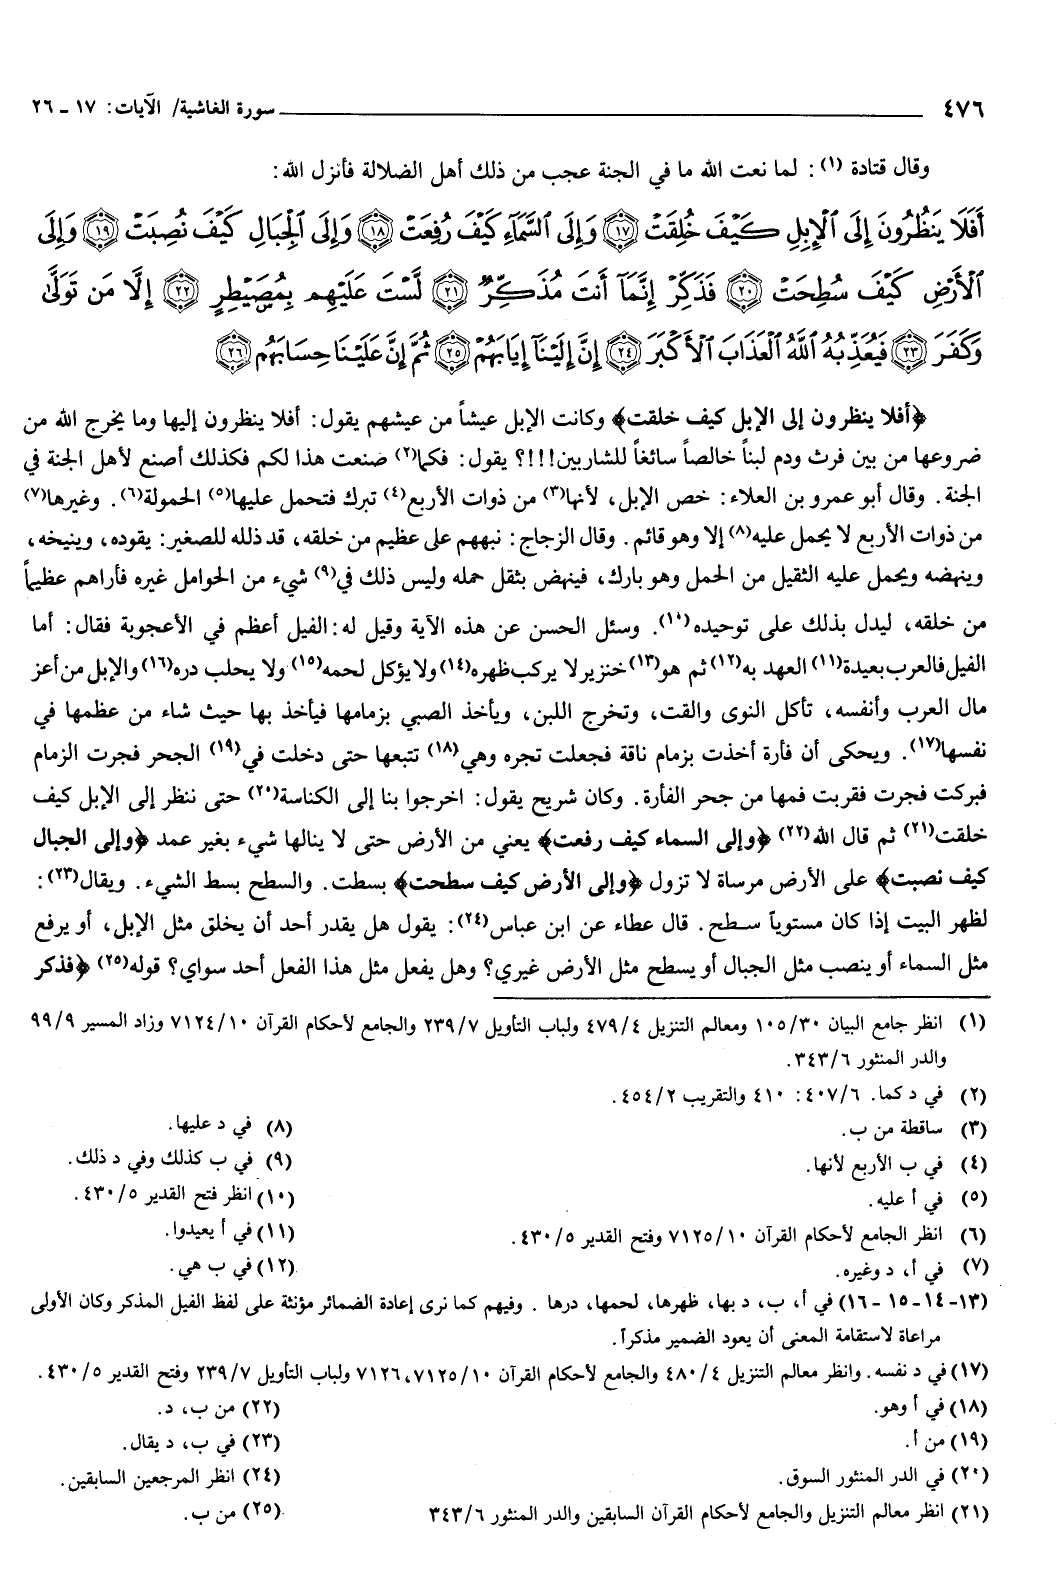 ٤٧٦ سورة الغاشية/ الآيات: ١٧ ـ ٢٦
وقال قتادة (١): لما نعت الله ما في الجنة عجب من ذلك أهل الضلالة فأنزل الله:
أَفَلَا يَنظُرُونَ إِلَى ٱلْإِبِلِ كَيْفَ خُلِقَتْ ﴿١٧﴾ وَإِلَى ٱلسَّمَآءِ كَيْفَ رُفِعَتْ ﴿١٨﴾ وَإِلَى ٱلْجِبَالِ كَيْفَ نُصِبَتْ ﴿١٩﴾ وَإِلَى
ٱلْأَرْضِ كَيْفَ سُطِحَتْ ﴿٢٠﴾ فَذَكِّرْ إِنَّمَآ أَنتَ مُذَكِّرٌ ﴿٢١﴾ لَّسْتَ عَلَيْهِم بِمُصَيْطِرٍ ﴿٢٢﴾ إِلَّا مَن تَوَلَّىٰ
وَكَفَرَ ﴿٢٣﴾ فَيُعَذِّبُهُ ٱللَّهُ ٱلْعَذَابَ ٱلْأَكْبَرَ ﴿٢٤﴾ إِنَّ إِلَيْنَآ إِيَابَهُمْ ﴿٢٥﴾ ثُمَّ إِنَّ عَلَيْنَا حِسَابَهُم ﴿٢٦﴾
﴿أفلا ينظرون إلى الإبل كيف خلقت﴾ وكانت الإبل عيشاً من عيشهم يقول: أفلا ينظرون إليها وما يخرج الله من
ضروعها من بين فرث ودم لبناً خالصاً سائغاً للشاربين!!!؟ يقول: فكما(٢) صنعت هذا لكم فكذلك أصنع لأهل الجنة في
الجنة. وقال أبو عمرو بن العلاء: خص الإبل، لأنها(٣) من ذوات الأربع(٤) تبرك فتحمل عليها(٥) الحمولة(٦). وغيرها(٧)
من ذوات الأربع لا يحمل عليه(٨) إلا وهو قائم. وقال الزجاج: نبههم على عظيم من خلقه، قد ذلله للصغير: يقوده، وينيخه،
وينهضه ويحمل عليه الثقيل من الحمل وهو بارك، فينهض بثقل حمله وليس ذلك في(٩) شيء من الحوامل غيره فأراهم عظيماً
من خلقه، ليدل بذلك على توحيده(١٠). وسئل الحسن عن هذه الآية وقيل له: الفيل أعظم في الأعجوبة فقال: أما
الفيل فالعرب بعيدة(١١) العهد به(١٢) ثم هو(١٣) خنزير لا يركب ظهره(١٤) ولا يؤكل لحمه(١٥) ولا يحلب دره(١٦) والإبل من أعز
مال العرب وأنفسه، تأكل النوى والقت، وتخرج اللبن، ويأخذ الصبي بزمامها فيأخذ بها حيث شاء من عظمها في
نفسها(١٧). ويحكى أن فأرة أخذت بزمام ناقة فجعلت تجره وهي(١٨) تتبعها حتى دخلت في(١٩) الجحر فجرت الزمام
فبركت فجرت فقربت فمها من جحر الفأرة. وكان شريح يقول: اخرجوا بنا إلى الكناسة(٢٠) حتى ننظر إلى الإبل كيف
خلقت(٢١) ثم قال الله(٢٢) ﴿وإلى السماء كيف رفعت﴾ يعني من الأرض حتى لا ينالها شيء بغير عمد ﴿وإلى الجبال
كيف نصبت﴾ على الأرض مرساة لا تزول ﴿وإلى الأرض كيف سطحت﴾ بسطت. والسطح بسط الشيء. ويقال(٢٣):
لظهر البيت إذا كان مستوياً سطح. قال عطاء عن ابن عباس(٢٤): يقول هل يقدر أحد أن يخلق مثل الإبل، أو يرفع
مثل السماء أو ينصب مثل الجبال أو يسطح مثل الأرض غيري؟ وهل يفعل مثل هذا الفعل أحد سواي؟ قوله(٢٥) ﴿فذكر
(١) انظر جامع البيان ١٠٥/٣٠ ومعالم التنزيل ٤٧٩/٤ ولباب التأويل ٢٣٩/٧ والجامع لأحكام القرآن ٧١٢٤/١٠ وزاد المسير ٩٩/٩
والدر المنثور ٣٤٣/٦.
(٢) في د كما. ٤٠٧/٦: ٤١٠ والتقريب ٤٥٤/٢.
(٣) ساقطة من ب. (٨) في د عليها.
(٤) في ب الأربع لأنها. (٩) في ب كذلك وفي د ذلك.
(٥) في أ عليه. (١٠) انظر فتح القدير ٤٣٠/٥.
(٦) انظر الجامع لأحكام القرآن ٧١٢٥/١٠ وفتح القدير ٤٣٠/٥. (١١) في أ يعيدوا.
(٧) في أ، د وغيره. (١٢) في ب هي.
(١٣-١٤-١٥-١٦) في أ، ب، د بها، ظهرها، لحمها، درها. وفيهم كما نرى إعادة الضمائر مؤنثة على لفظ الفيل المذكر وكان الأولى
مراعاة لاستقامة المعنى أن يعود الضمير مذكراً.
(١٧) في د نفسه. وانظر معالم التنزيل ٤٨٠/٤ والجامع لأحكام القرآن ٧١٢٥/١٠، ٧١٢٦ ولباب التأويل ٢٣٩/٧ وفتح القدير ٤٣٠/٥.
(١٨) في أ وهو. (٢٢) من ب، د.
(١٩) من أ. (٢٣) في ب، د يقال.
(٢٠) في الدر المنثور السوق. (٢٤) انظر المرجعين السابقين.
(٢١) انظر معالم التنزيل والجامع لأحكام القرآن السابقين والدر المنثور ٣٤٣/٦ (٢٥) من ب.